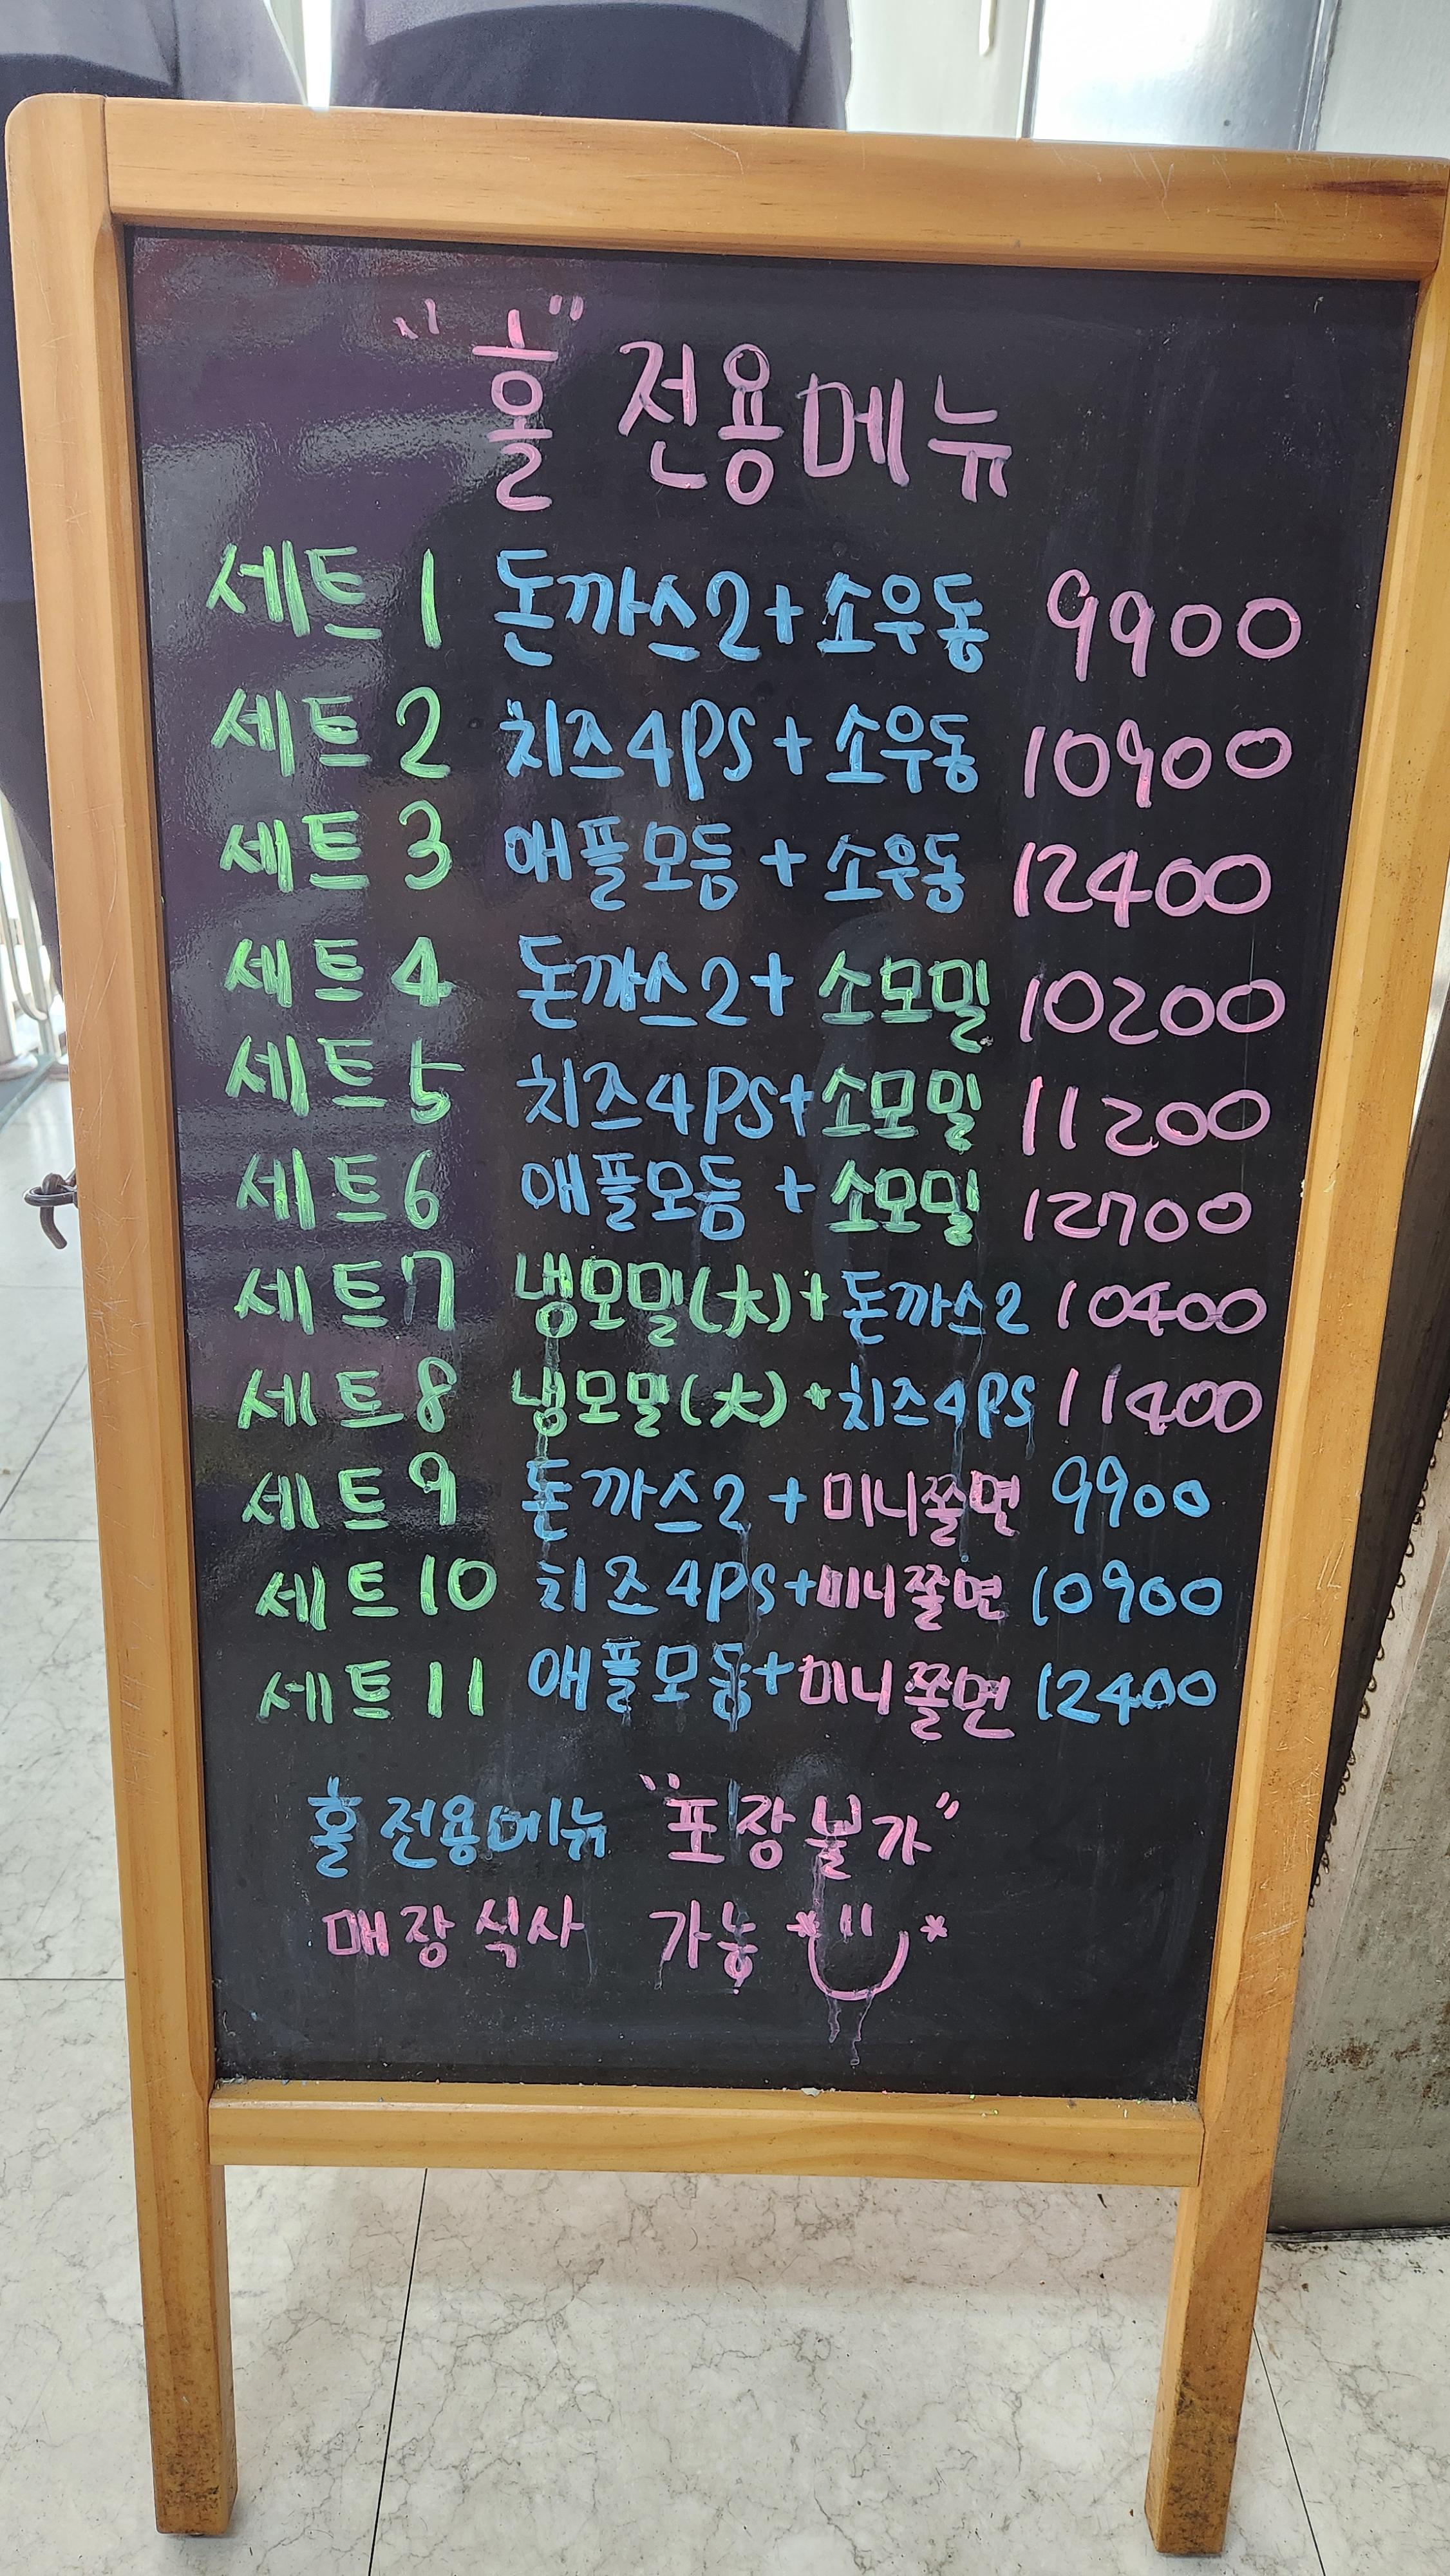 "홀" 전용메뉴
세트 1 돈까스2+소우동 9900
세트 2 치즈4PS+소우동 10900
세트 3 애플모듬+소우동 12400
세트 4 돈까스2+소모밀 10200
세트 5 치즈4PS+소모밀 11200
세트 6 애플모듬+소모밀 12700
세트 7 냉모밀(大)+돈까스2 10400
세트 8 냉모밀(大)+치즈4PS 11400
세트 9 돈까스2+미니쫄면 9900
세트 10 치즈4PS+미니쫄면 10900
세트 11 애플모듬+미니쫄면 12400
홀 전용메뉴 "포장불가"
매장식사 가능